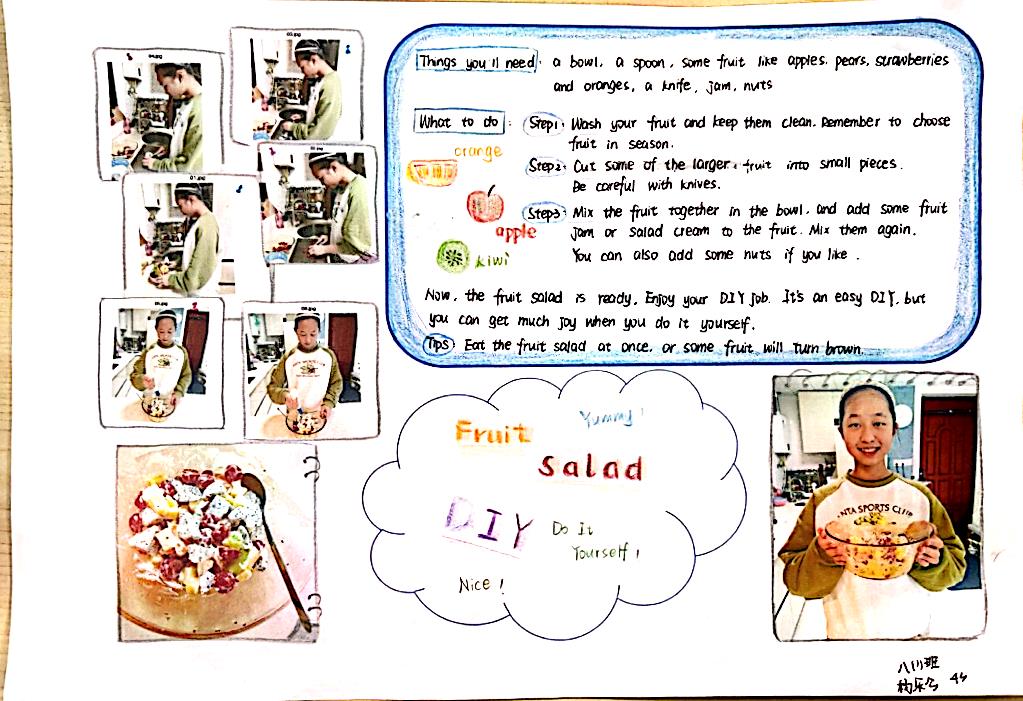 04.jpg
05.jpg
01.jpg
Things you'll need: a bowl, a spoon, some fruit like apples, pears, strawberries
and oranges, a knife, jam, nuts
What to do: Step1: Wash your fruit and keep them clean. Remember to choose
fruit in season.
orange
Step2: Cut some of the larger fruit into small pieces.
Be careful with knives.
Step3: Mix the fruit together in the bowl, and add some fruit
apple
jam or salad cream to the fruit. Mix them again.
kiwi
You can also add some nuts if you like.
Now, the fruit salad is ready. Enjoy your DIY job. It's an easy DIY, but
you can get much joy when you do it yourself.
Tips Eat the fruit salad at once, or some fruit will turn brown.
Fruit
Yummy!
Salad
DIY
Do It
Yourself!
Nice!
NTA SPORTS CLUB
班
44